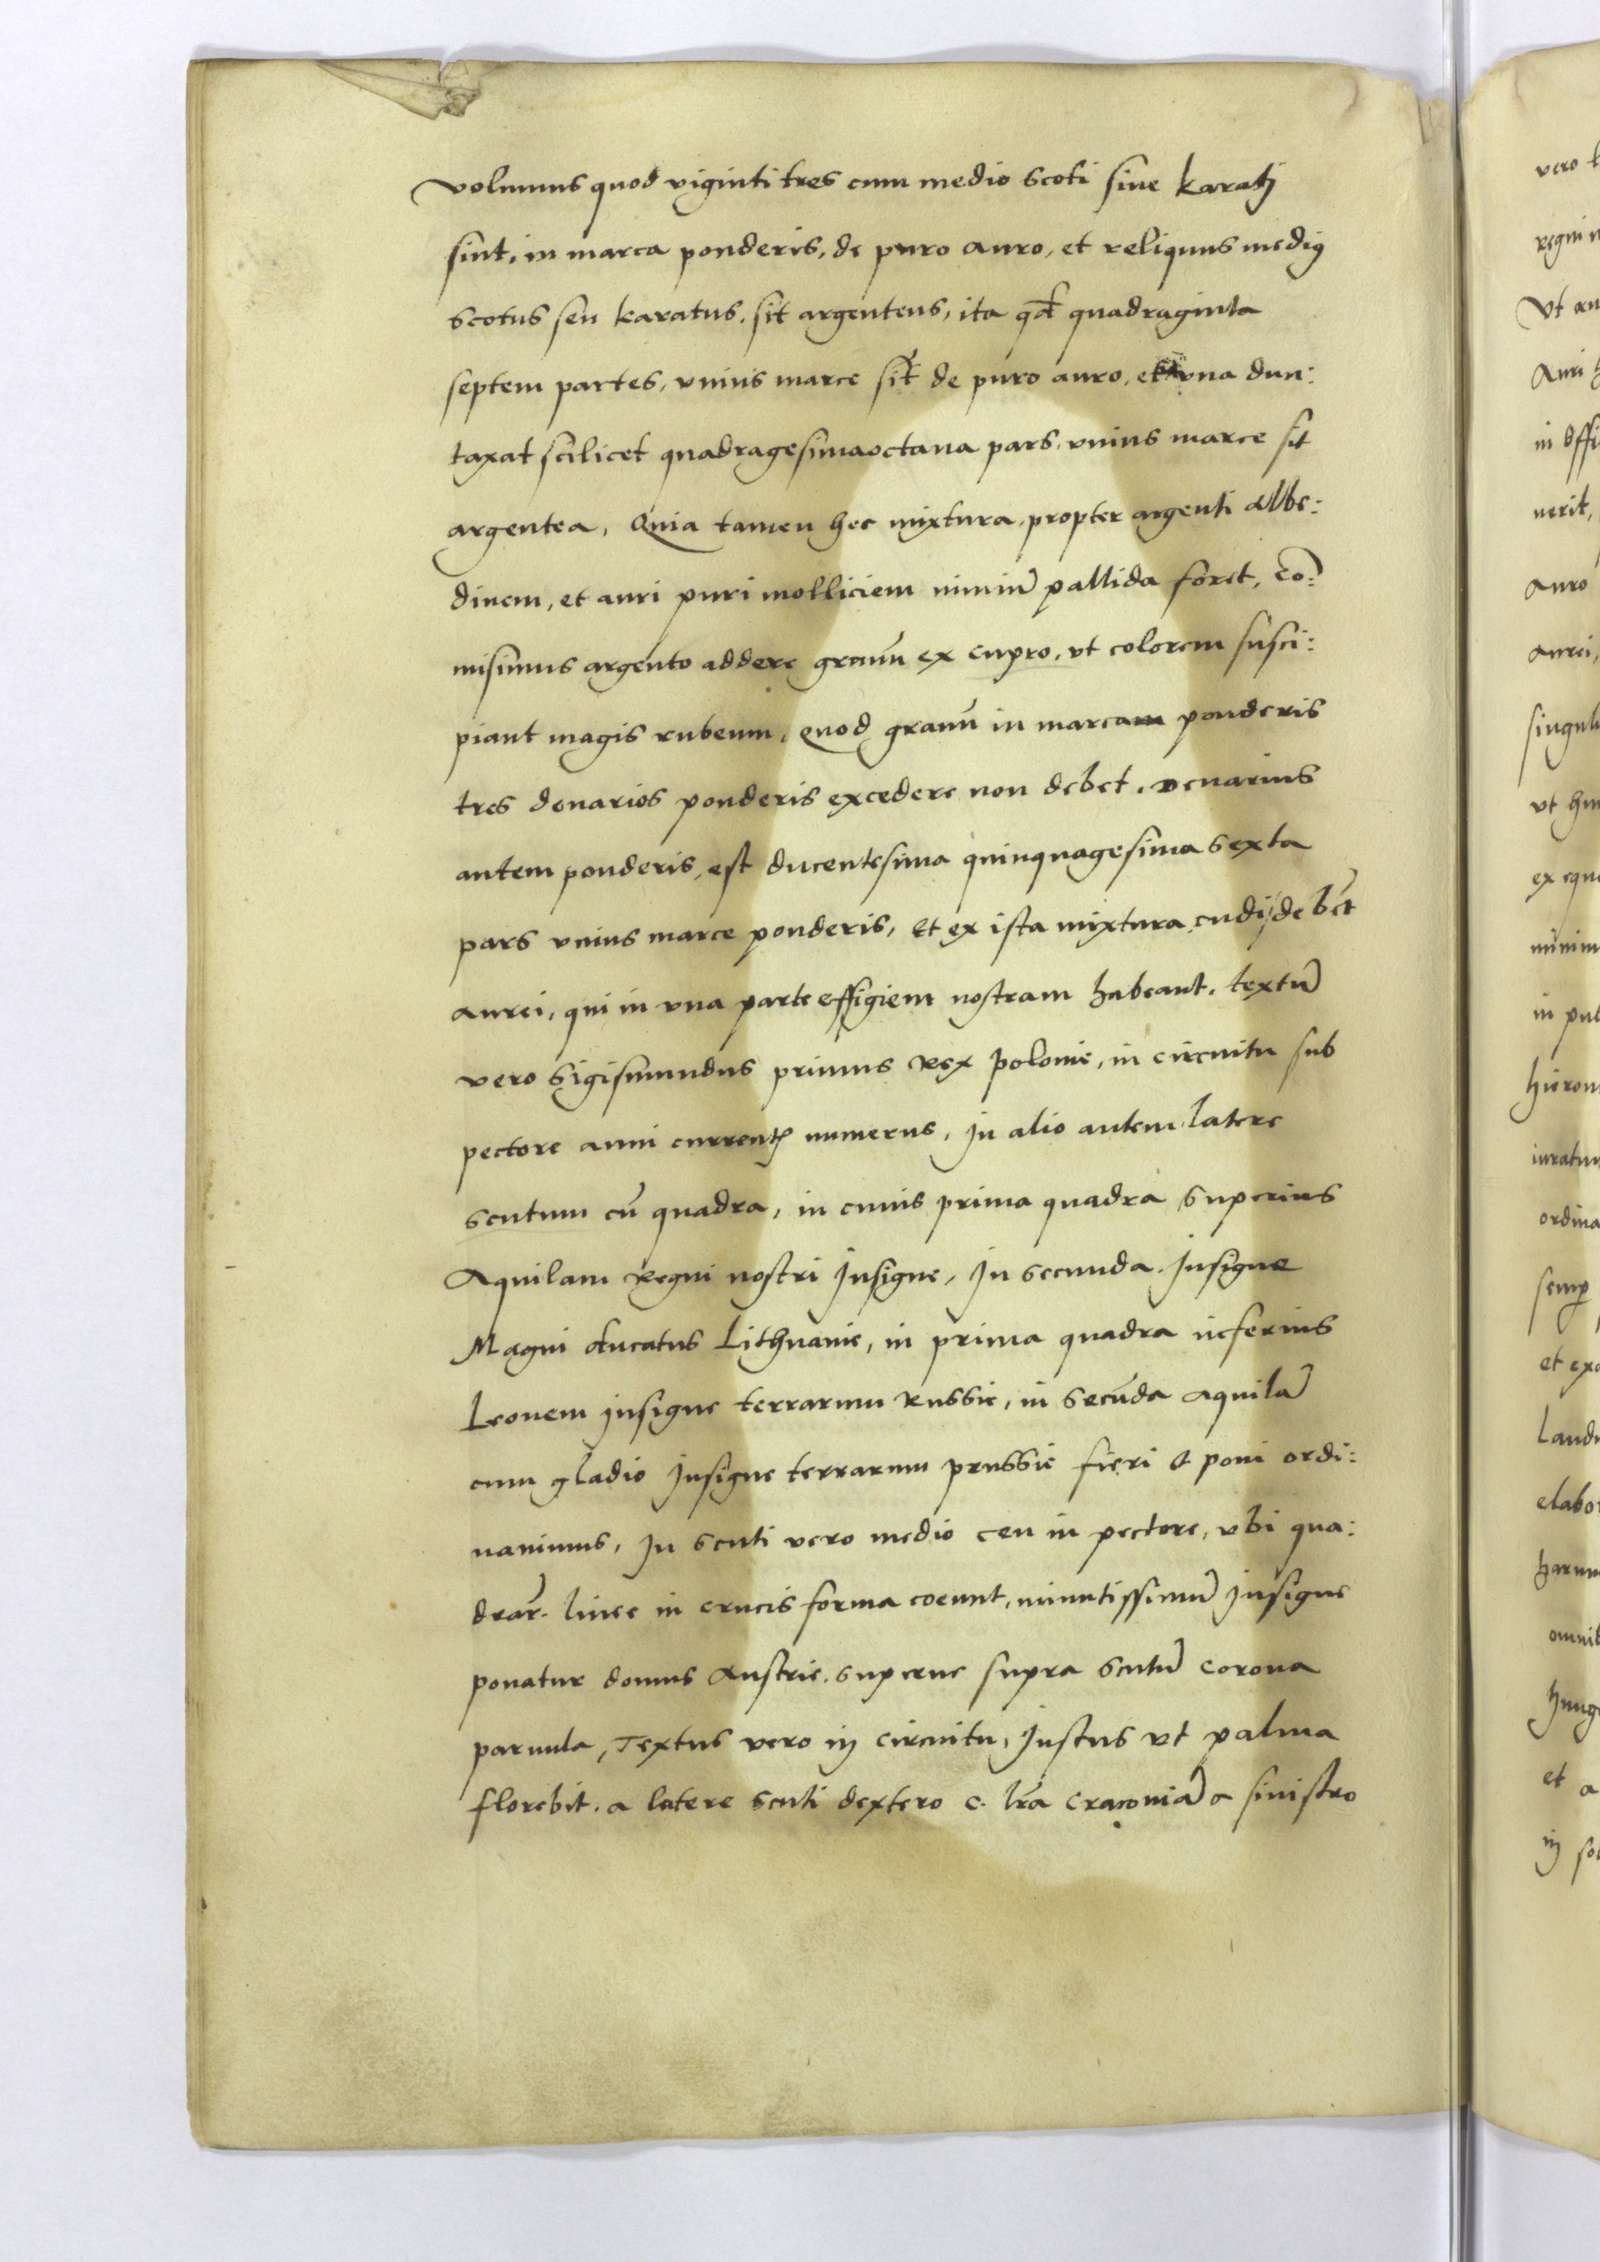 volumus quod viginti tres cum medio scoti siue karatj
sint, in marca ponderis, de puro auro, et reliquus mediꝰ
scotus seu karatus, sit argenteus, ita qđ quadraginta
septem partes, vnius marce sīt de puro auro, et vna dun:
taxat scilicet quadragesimaoctaua pars, vnius marce sit
argentea, Quia tamen hec mixtura, propter argenti albe:
dinem, et auri puri molliciem nimiū pallida foret, cō:
misimus argento addere granū ex cupro, vt colorem susci:
piant magis rubeum, Quod granū in marcam ponderis
tres denarios ponderis excedere non debet, Denarius
autem ponderis, est ducentesima quinquagesima sexta
pars vnius marce ponderis, Et ex ista mixtura, cudi debēt
aurei, qui in vna parte effigiem nostram habeant, textū
vero Sigismundus primus Rex Polonie, in circuitu sub
pectore anni currentꝭ numerus, In alio autem latere
scutum cū quadra, in cuius prima quadra superius
Aquilam Regni nostri Insigne, In secunda Insigne
Magni ducatus Lithuanie, in prima quadra inferius
Leonem Insigne terrarum Russie, in secūda aquilā
cum gladio Insigne terrarum prussie fieri & poni ordi:
nauimus, In scuti vero medio ceu in pectore, vbi qua:
drar̄. linee in crucis forma coeunt, minutissimū Insigne
ponatur domus Austrie, superne supra scutū corona
paruula, Textus vero in circuitu, Justus vt palma
florebit. a latere scuti dextero C. lr̄a Cracouiā a sinistro
vero
regni
Vt
Auri
in Offi
uerit,
auro
aurei,
singul
vt
ex equ
minim
in pub
hieron
iuratu
ordina
semꝑ
et ex
Laud
elabo
harum
omni
hung
et a
in so